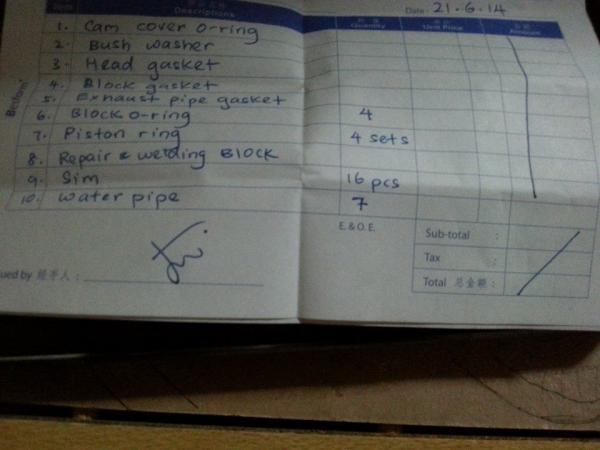 Date: 21.6.14
Item Descriptions Quantity Unit Price Amount
1. Cam cover o-ring
2. Bush washer
3. Head gasket
4. Block gasket
5. Exhaust pipe gasket
6. Block o-ring 4
7. Piston ring 4 sets
8. Repair & welding BLOCK
9. Sim 16 pcs
10. water pipe 7
E.& O.E.
Sub-total :
Tax :
Total 总金额 :
ued by 经手人 :